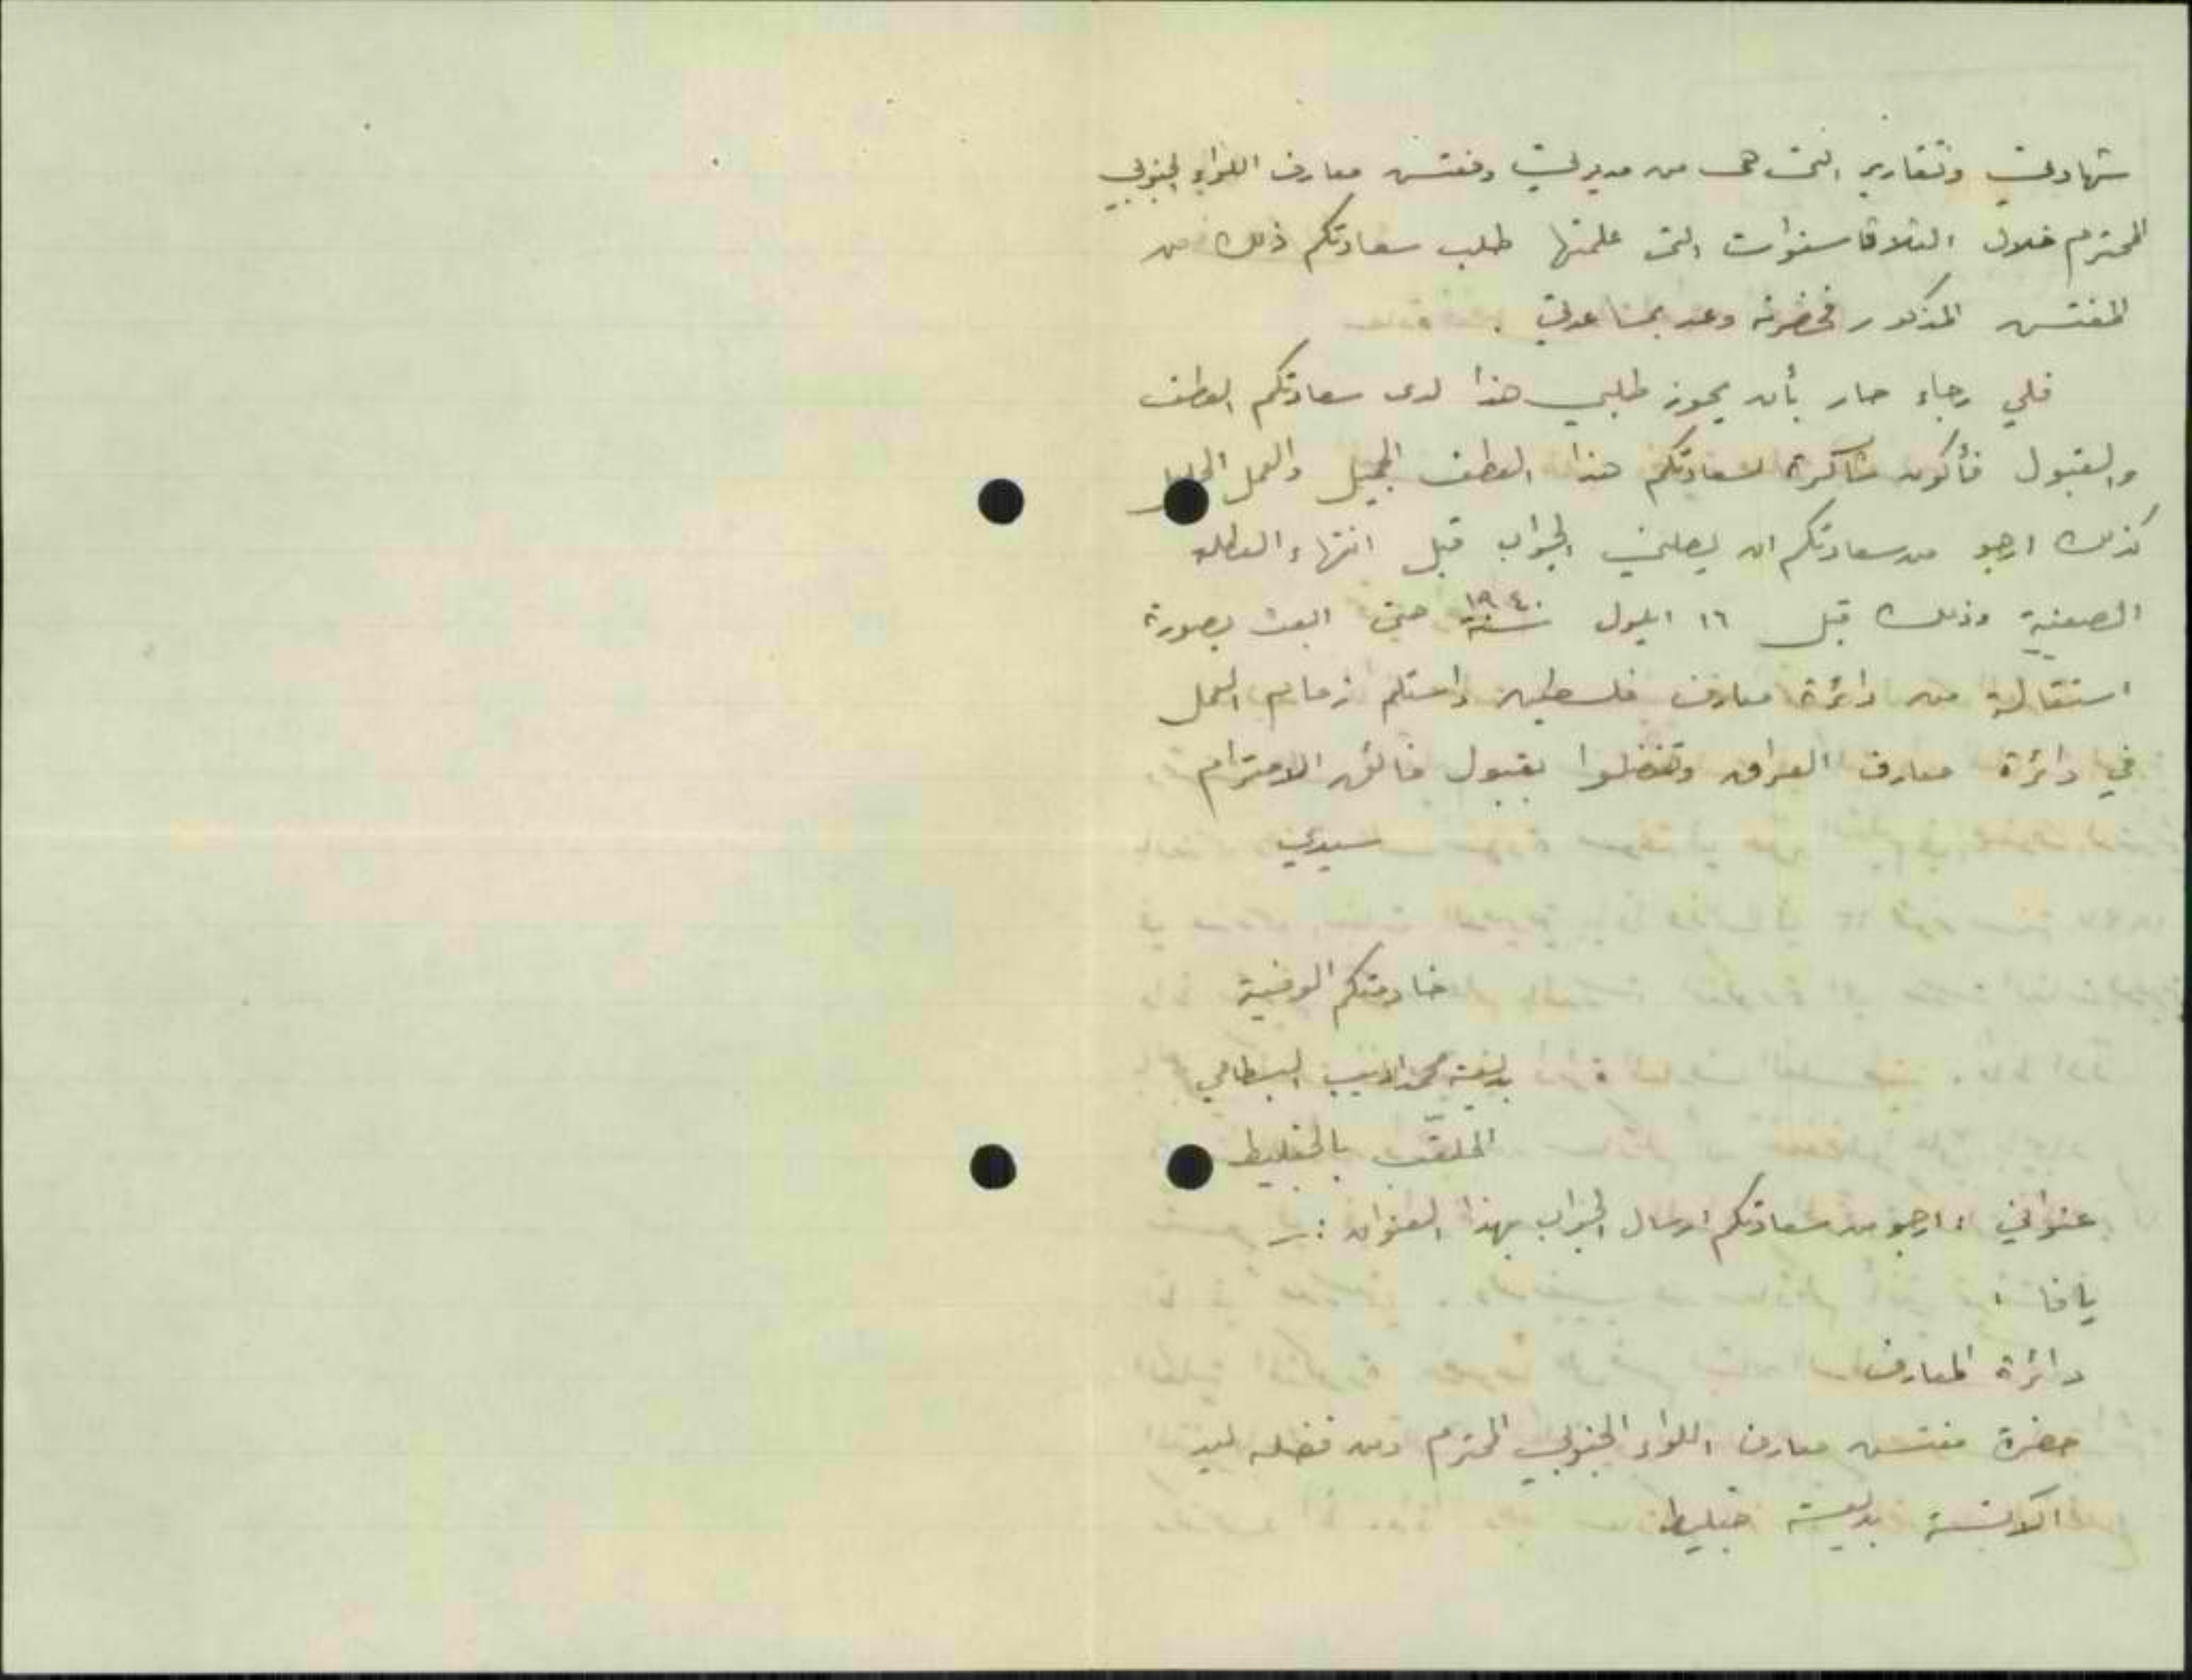 شهادتي وتقارير التي هي من مديرتي ومفتش معارف اللواء الجنوبي
المحترم خلال الثلاثة سنوات التي علمتها طلب سعادتكم ذلك من
المفتش المذكور فحضرته وعد بمساعدتي .
فلي رجاء حار بأن يحوز طلبي هذا لدى سعادتكم العطف
والقبول فأكون شاكرة لسعادتكم هذا العطف الجميل والعمل الجليل
كذلك ارجو من سعادتكم ان يصلني الجواب قبل انتهاء العطلة
الصيفية وذلك قبل ١٦ ايلول سنة ١٩٤٠ حتى ابعث بصورة
استقالة من دائرة معارف فلسطين واستلم زمام العمل
في دائرة معارف العراق وتفضلوا بقبول فائق الاحترام
سيدي
خادمتكم الوفية
بديعة محمد اديب البسطامي
الملقب بالخليط
عنواني : ارجو من سعادتكم ارسال الجواب بهذا العنوان :ـ
يافا :
دائرة المعارف
حضرة مفتش معارف اللواء الجنوبي المحترم ومن فضله ليد
الآنسة بديعة